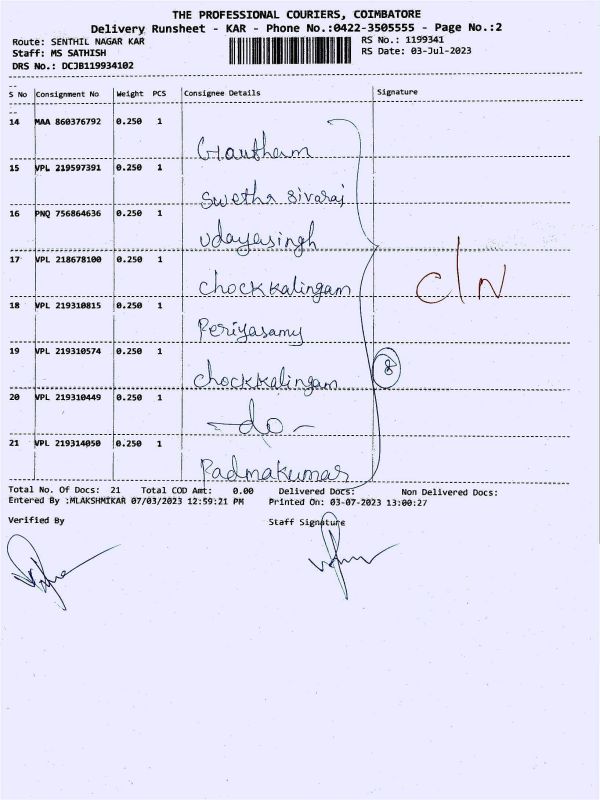 THE PROFESSIONAL COURIERS, COIMBATORE
Delivery Runsheet - KAR - Phone No.:0422-3505555 - Page No.:2
Route: SENTHIL NAGAR KAR RS No.: 1199341
Staff: MS SATHISH RS Date: 03-Jul-2023
DRS No.: DCJB119934102
S No Consignment No Weight PCS Consignee Details Signature
14 MAA 860376792 0.250 1
Gautham
15 VPL 219597391 0.250 1
Swetha Sivaraj
16 PNQ 756864636 0.250 1
Udayasingh
17 VPL 218678100 0.250 1
Chockkalingam
C/N
18 VPL 219310815 0.250 1
Periyasamy
19 VPL 219310574 0.250 1
Chockkalingam
8
20 VPL 219310449 0.250 1
-do-
21 VPL 219314050 0.250 1
Padmakumar
Total No. Of Docs: 21 Total COD Amt: 0.00 Delivered Docs: Non Delivered Docs:
Entered By :MLAKSHMIKAR 07/03/2023 12:59:21 PM Printed On: 03-07-2023 13:00:27
Verified By Staff Signature